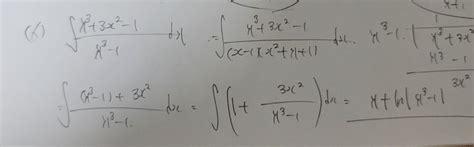 (x) ∫ (x³+3x²-1)/(x³-1) dx = ∫ (x³+3x²-1)/((x-1)(x²+x+1)) dx. x³-1. 1
x³+3x²
x³-1
3x²
= ∫ ((x³-1)+3x²)/(x³-1) dx = ∫ (1 + 3x²/(x³-1)) dx = x+ln|x³-1|